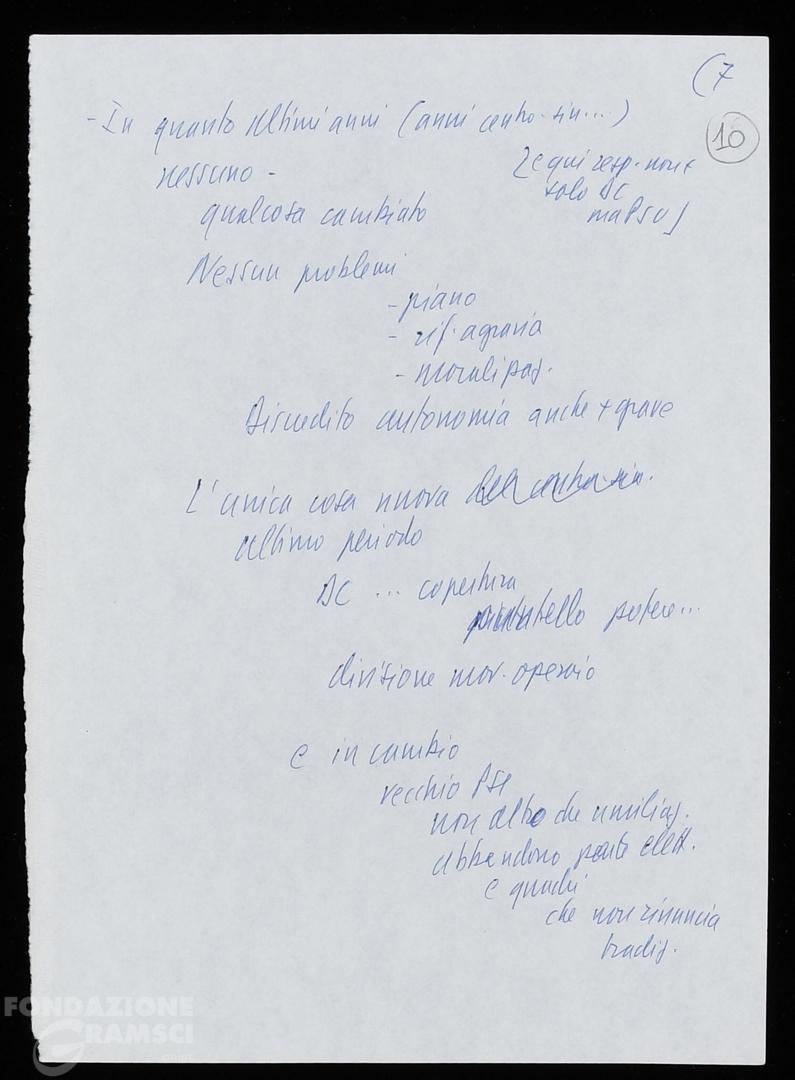 (7
10
- In quanto ultimi anni (anni centro-sin...)
nessuno -
qualcosa cambiato
[e qui resp. non +
solo DC
ma PSU]
Nessun problemi
- piano
- rif. agraria
- moralizzaz.
Discredito autonomia anche + grave
L'unica cosa nuova del centro-sin.
ultimo periodo
DC ... copertura
puntello potere...
divisione mov. operaio
e in cambio
vecchio PSI
non altro che umiliaz.
abbandono parte elett.
e quadri
che non rinuncia
tradiz.
FONDAZIONE
GRAMSCI